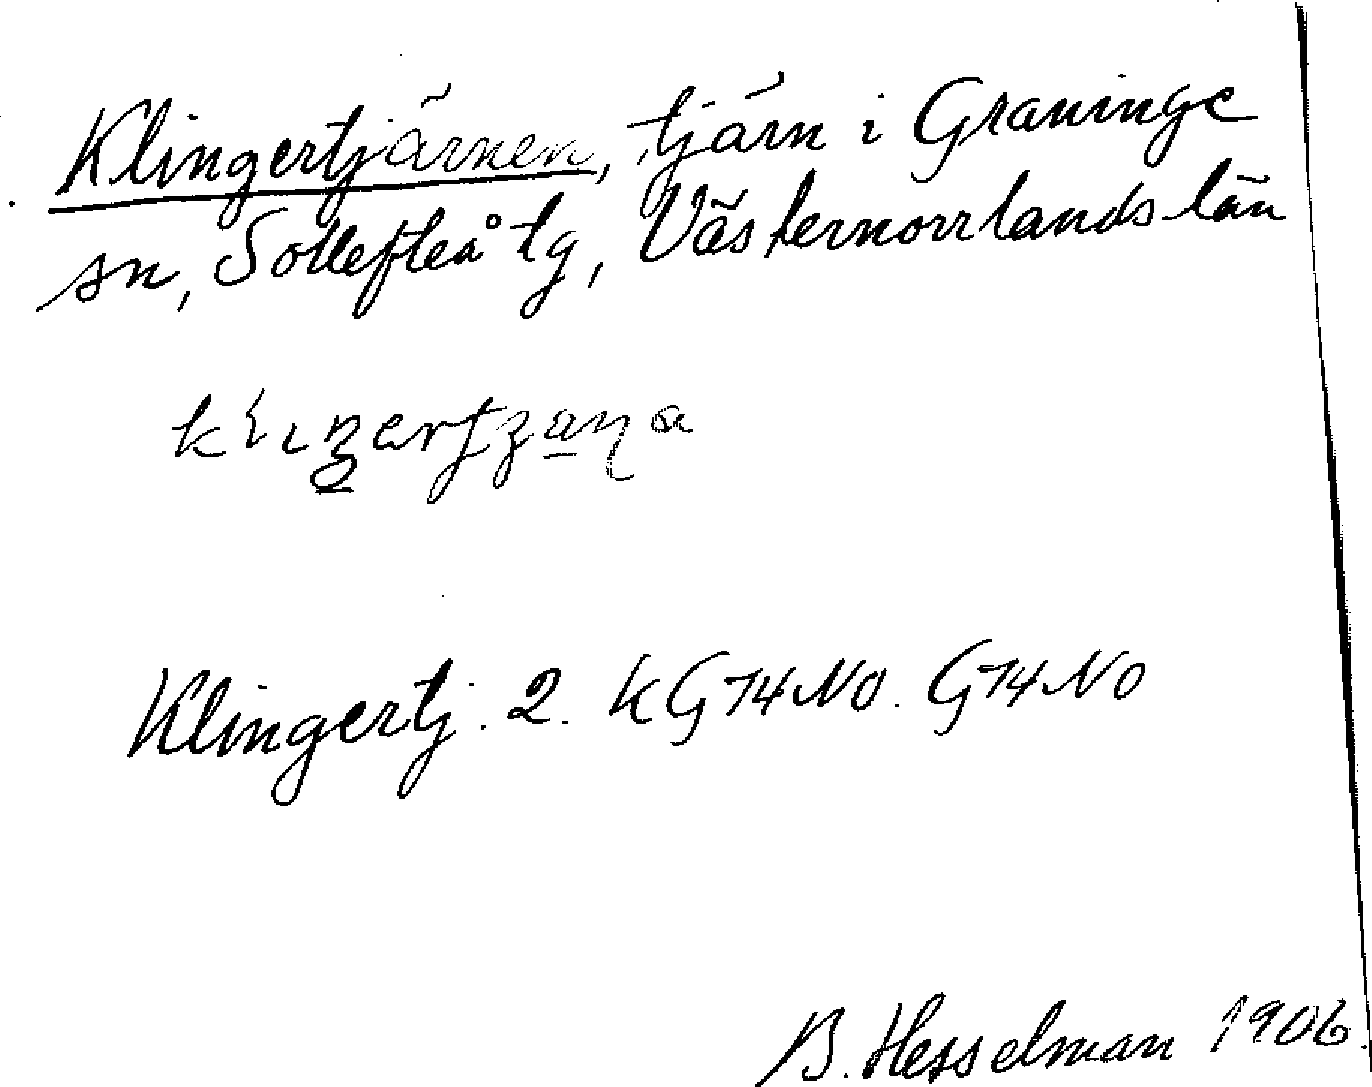 Klingertjärnen, tjärn i Graninge
sn, Sollefteå tg, Västernorrlands län
Klingertj. 2. KG74No. G74No
B. Hesselman 1906.